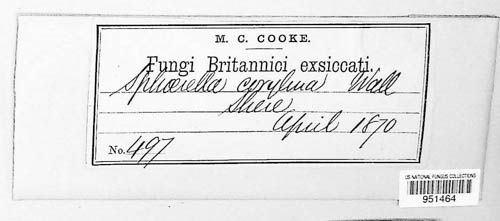 M. C. COOKE.
Fungi Britannici exsiccati.
Sphærella corylina Wall
Shere
April 1870
No. 497
US NATIONAL FUNGUS COLLECTIONS
951464